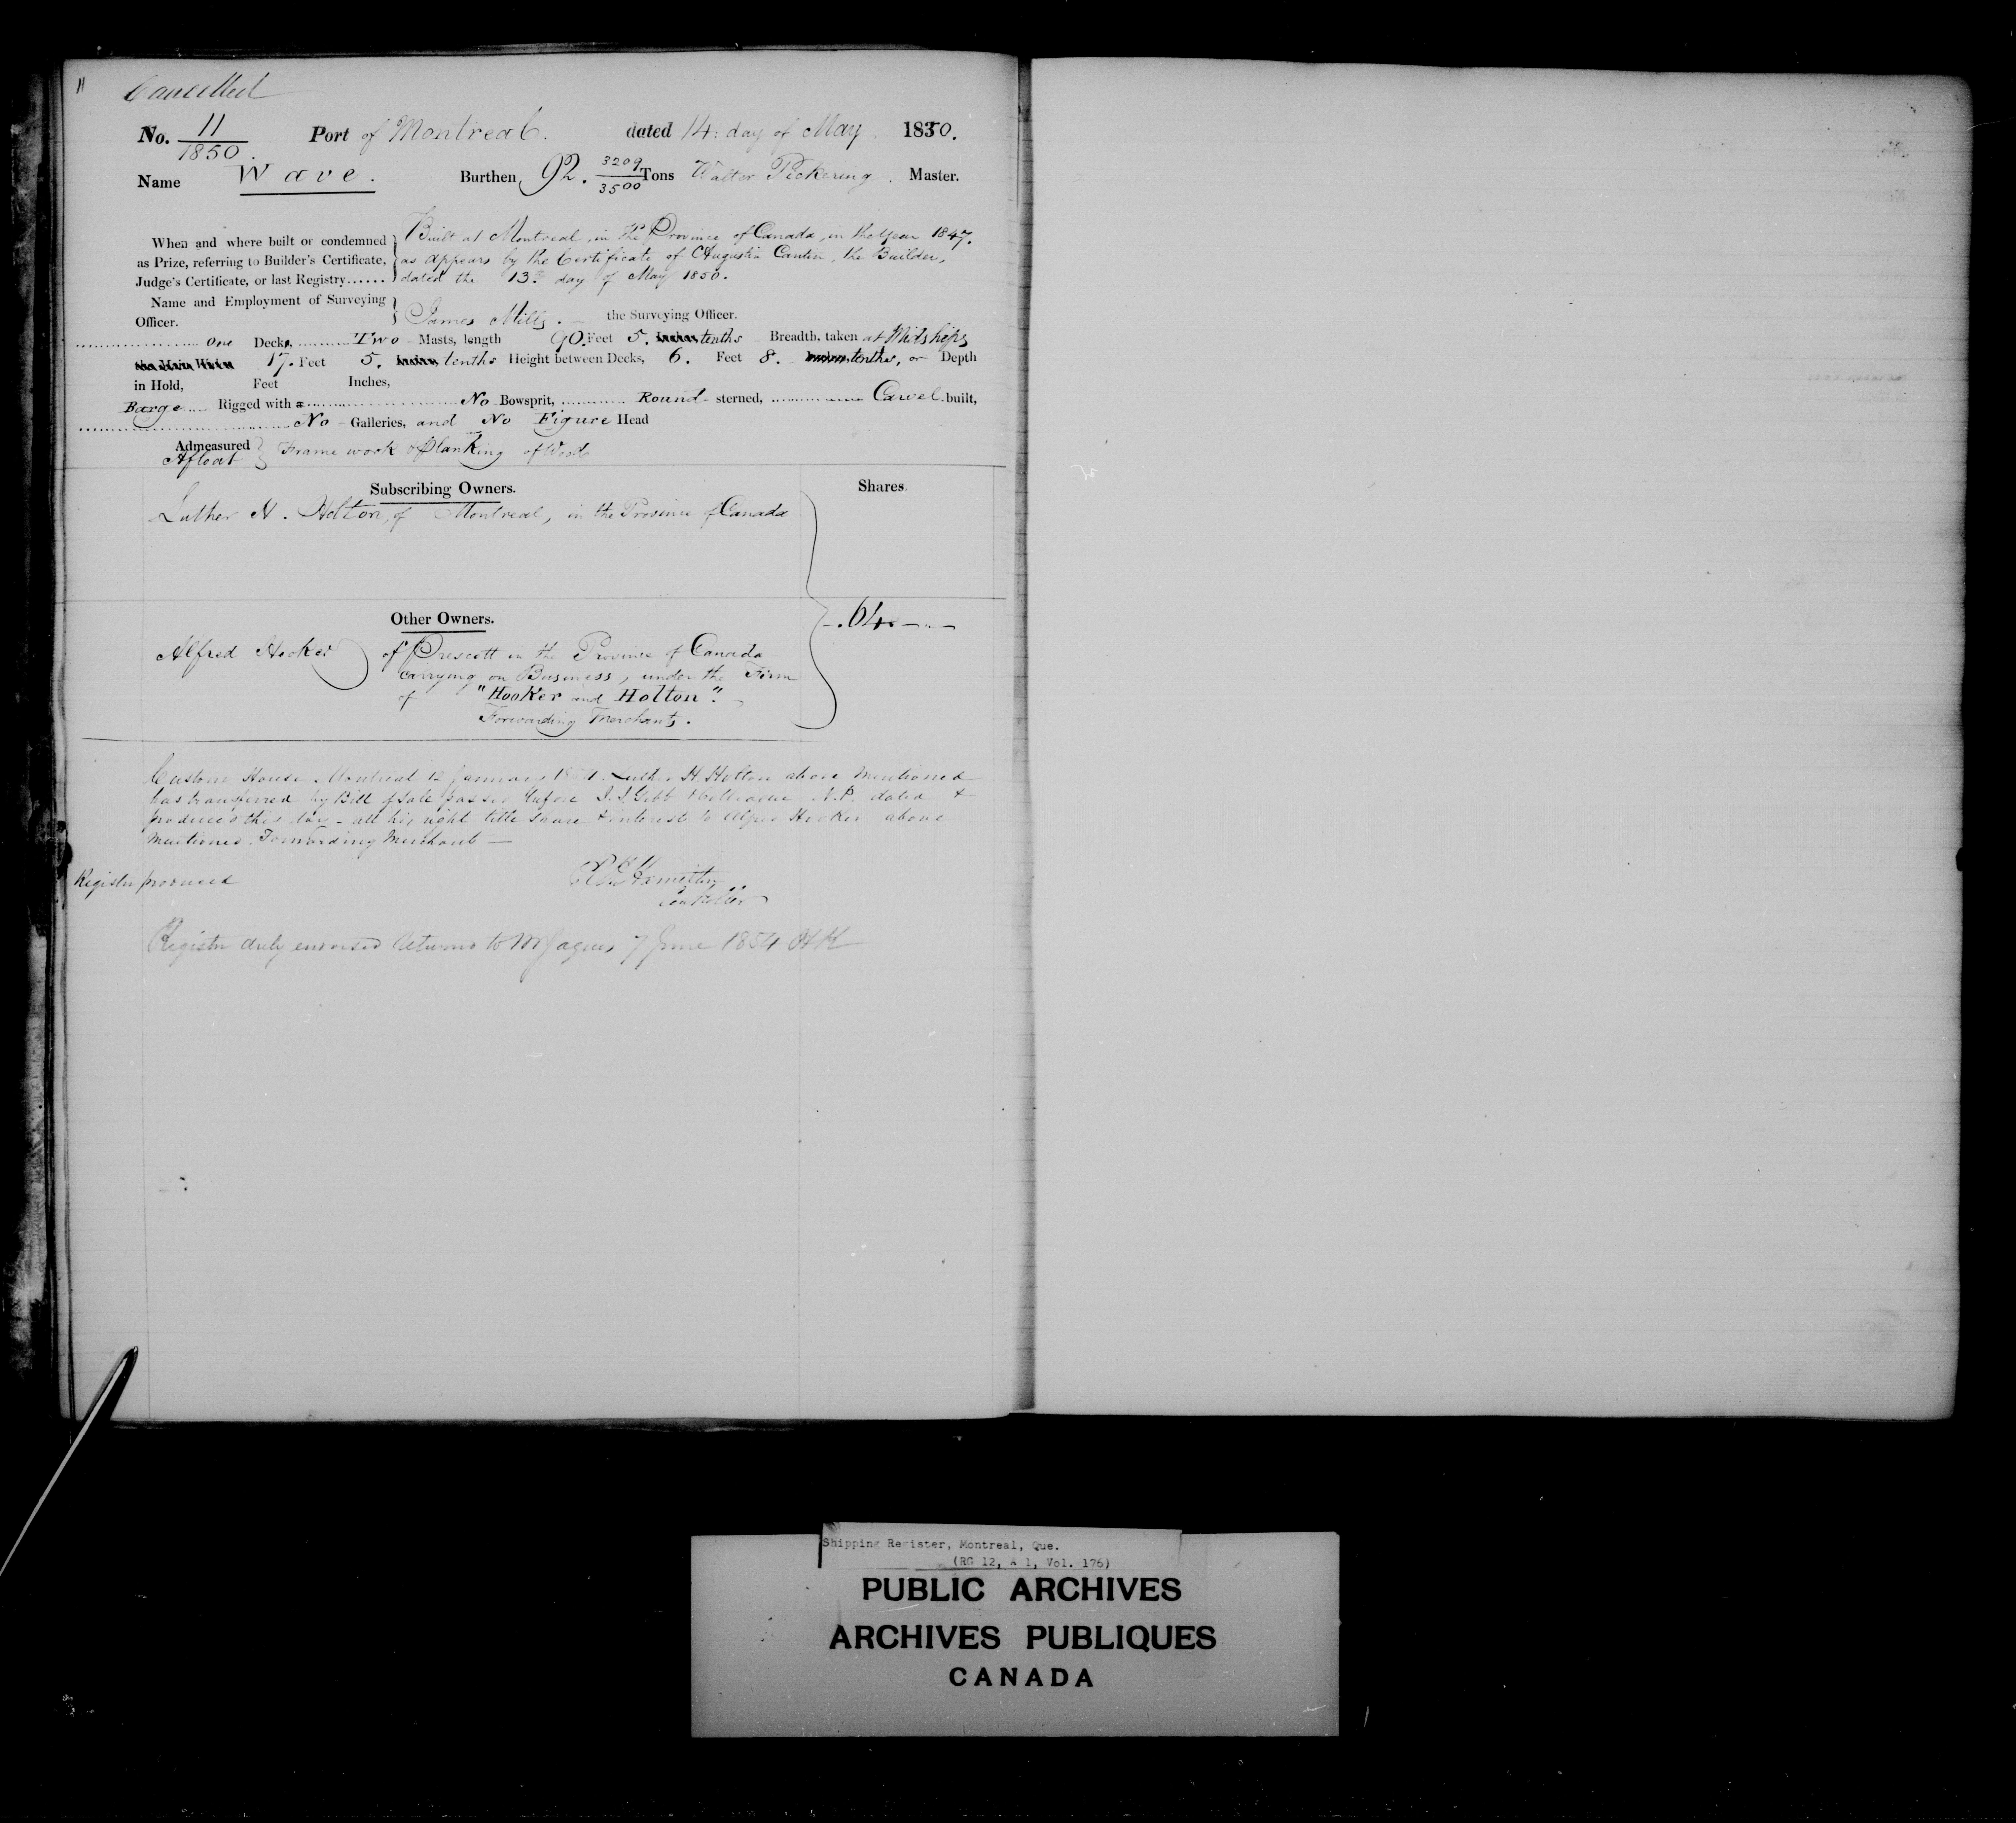 11
Cancelled
No. 11/1850. Port of Montreal. dated 14: day of May. 1850.
Name Wave. Burthen, 92. 3209/3500 Tons Walter Pickering. Master.
When and where built or condemned as Prize, referring to Builder's Certificate, Judge's Certificate, or last Registry......
Built at Montreal, in the Province of Canada, in the Year 1847.
as appears by the Certificate of Augustin Cantin, the Builder,
dated the 13th day of May 1850.
Name and Employment of Surveying Officer.
James Mills. — the Surveying Officer.
One Decks, Two Masts, length 90. Feet 5. Inches tenths Breadth, taken at Midships
17. Feet 5. Inches tenths Height between Decks, 6. Feet 8. Inches tenths, or Depth
in Hold, Feet Inches,
Barge Rigged with a No Bowsprit, Round sterned, Carvel built,
No Galleries, and No Figure Head
Admeasured Afloat } Frame work & Planking of Wood
Subscribing Owners. Shares.
Luther H. Holton, of Montreal, in the Province of Canada
Other Owners.
64
Alfred Hooker of Prescott in the Province of Canada
carrying on Business, under the Firm
of "Hooker and Holton".
Forwarding Merchants.
Custom House Montreal 12 January 1854. Luther H. Holton above mentioned
has transferred by Bill of Sale passed before I. J. Gibb & Colleague N.P. dated &
produced this day - all his right title share & interest to Alfred Hooker above
mentioned Forwarding Merchant —
Register produced
Hamilton
Controller
Register duly endorsed returned to Mr Jaques 7 June 1854 HK
Shipping Register, Montreal, Que.
(RG 12, A 1, Vol. 176)
PUBLIC ARCHIVES
ARCHIVES PUBLIQUES
CANADA